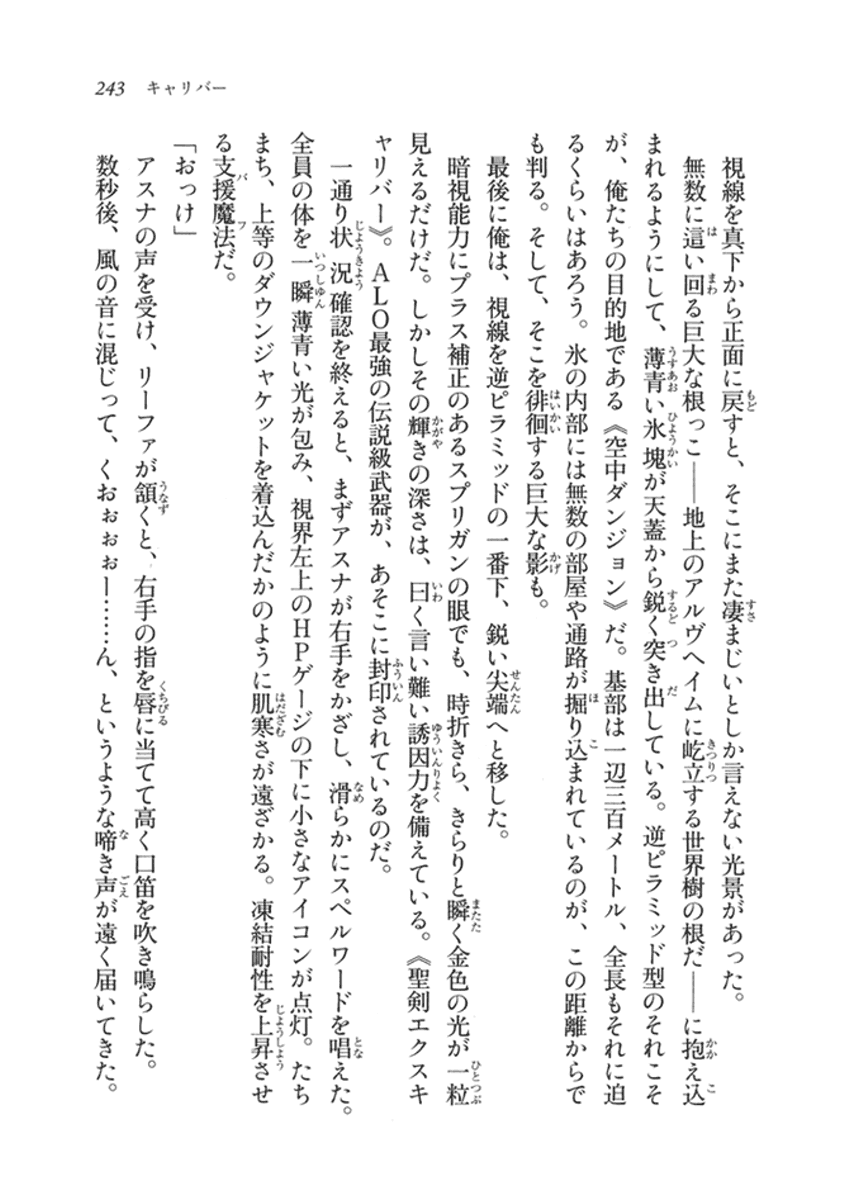 243 キャリバー
視線を真下から正面に戻すと、そこにまた凄まじいとしか言えない光景があった。
無数に這い回る巨大な根っこ――地上のアルヴヘイムに屹立する世界樹の根だ――に抱え込
まれるようにして、薄青い氷塊が天蓋から鋭く突き出している。逆ピラミッド型のそれこそ
が、俺たちの目的地である《空中ダンジョン》だ。基部は一辺三百メートル、全長もそれに迫
るくらいはあろう。氷の内部には無数の部屋や通路が掘り込まれているのが、この距離からで
も判る。そして、そこを徘徊する巨大な影も。
最後に俺は、視線を逆ピラミッドの一番下、鋭い尖端へと移した。
暗視能力にプラス補正のあるスプリガンの眼でも、時折きら、きらりと瞬く金色の光が一粒
見えるだけだ。しかしその輝きの深さは、曰く言い難い誘因力を備えている。《聖剣エクスキ
ャリバー》。ALO最強の伝説級武器が、あそこに封印されているのだ。
一通り状況確認を終えると、まずアスナが右手をかざし、滑らかにスペルワードを唱えた。
全員の体を一瞬薄青い光が包み、視界左上のHPゲージの下に小さなアイコンが点灯。たち
まち、上等のダウンジャケットを着込んだかのように肌寒さが遠ざかる。凍結耐性を上昇させ
る支援魔法だ。
「おっけ」
アスナの声を受け、リーファが頷くと、右手の指を唇に当てて高く口笛を吹き鳴らした。
数秒後、風の音に混じって、くおぉぉぉー……ん、というような啼き声が遠く届いてきた。